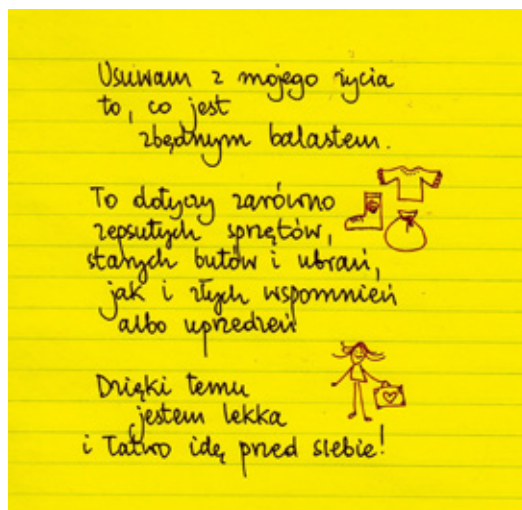 Usuwam z mojego życia
to, co jest
zbędnym balastem.
To dotyczy zarówno
zepsutych sprzętów,
starych butów i ubrań,
jak i złych wspomnień
albo uprzedzeń
Dzięki temu
jestem lekka
i łatwo idę przed siebie!